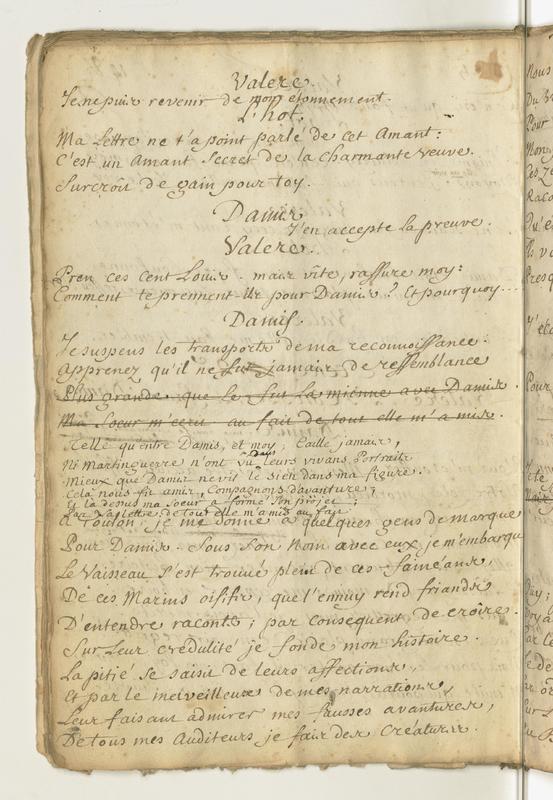 Valere.
Je ne puis revenir de mon etonnement.
L'hot.
Ma Lettre ne t'a point parlé de cet Amant:
C'est un Amant Secret de la charmante veuve.
Surcroit de gain pour toy.
Damis
J'en accepte la preuve.
Valere.
Pren ces cent Louis. mais vîte, rassure moy:
Comment te prennent-ils pour Damis? Et pourquoy...
Damis.
Je suspens les transports de ma reconnoissance.
Apprenez qu'il ne fut jamais de ressemblance
Plus grande que le fut la mienne avec Damis.
Ma Soeur m'ecrit au fait de tout elle m'a mis.
Telle qu'entre Damis, et moy; Caille jamais,
Ni Martinguerre n'ont vû dans leurs vivans Portraits
Mieux que Damis ne vit le sien dans ma figure.
Cela nous fit amis, Compagnons d'avanture;
Et là dessus ma Soeur a formé son projet;
Par sa lettre, de tout elle m'a mis au fait
A Toulon, je me donne à quelques gens de marque
Pour Damis. Sous son Nom avec eux je m'embarque
Le Vaisseau s'est trouvé plein de ces faméans,
De ces Marins oisifs, que l'ennuy rend friands
D'entendre raconter; par consequent de croire.
Sur Leur credulité je fonde mon histoire.
La pitié se saisit de leurs affections,
Et par le merveilleux de mes narrations,
Leur faisant admirer mes fausses avantures,
De tous mes Auditeurs je fais des Créatures.